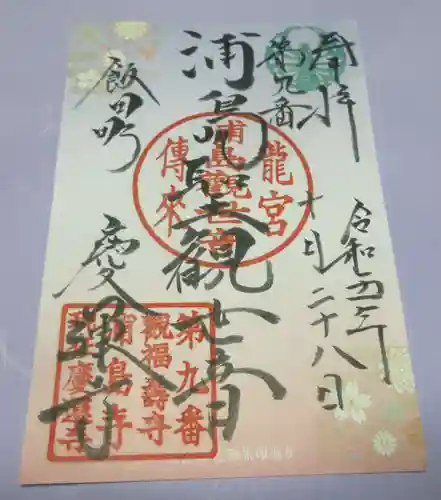 奉拝
第九番
令和四年
十月二十八日
浦島
観世音
飯田町
慶運寺
龍宮
浦島観世音
傳来
第九番
観福壽寺
浦島寺